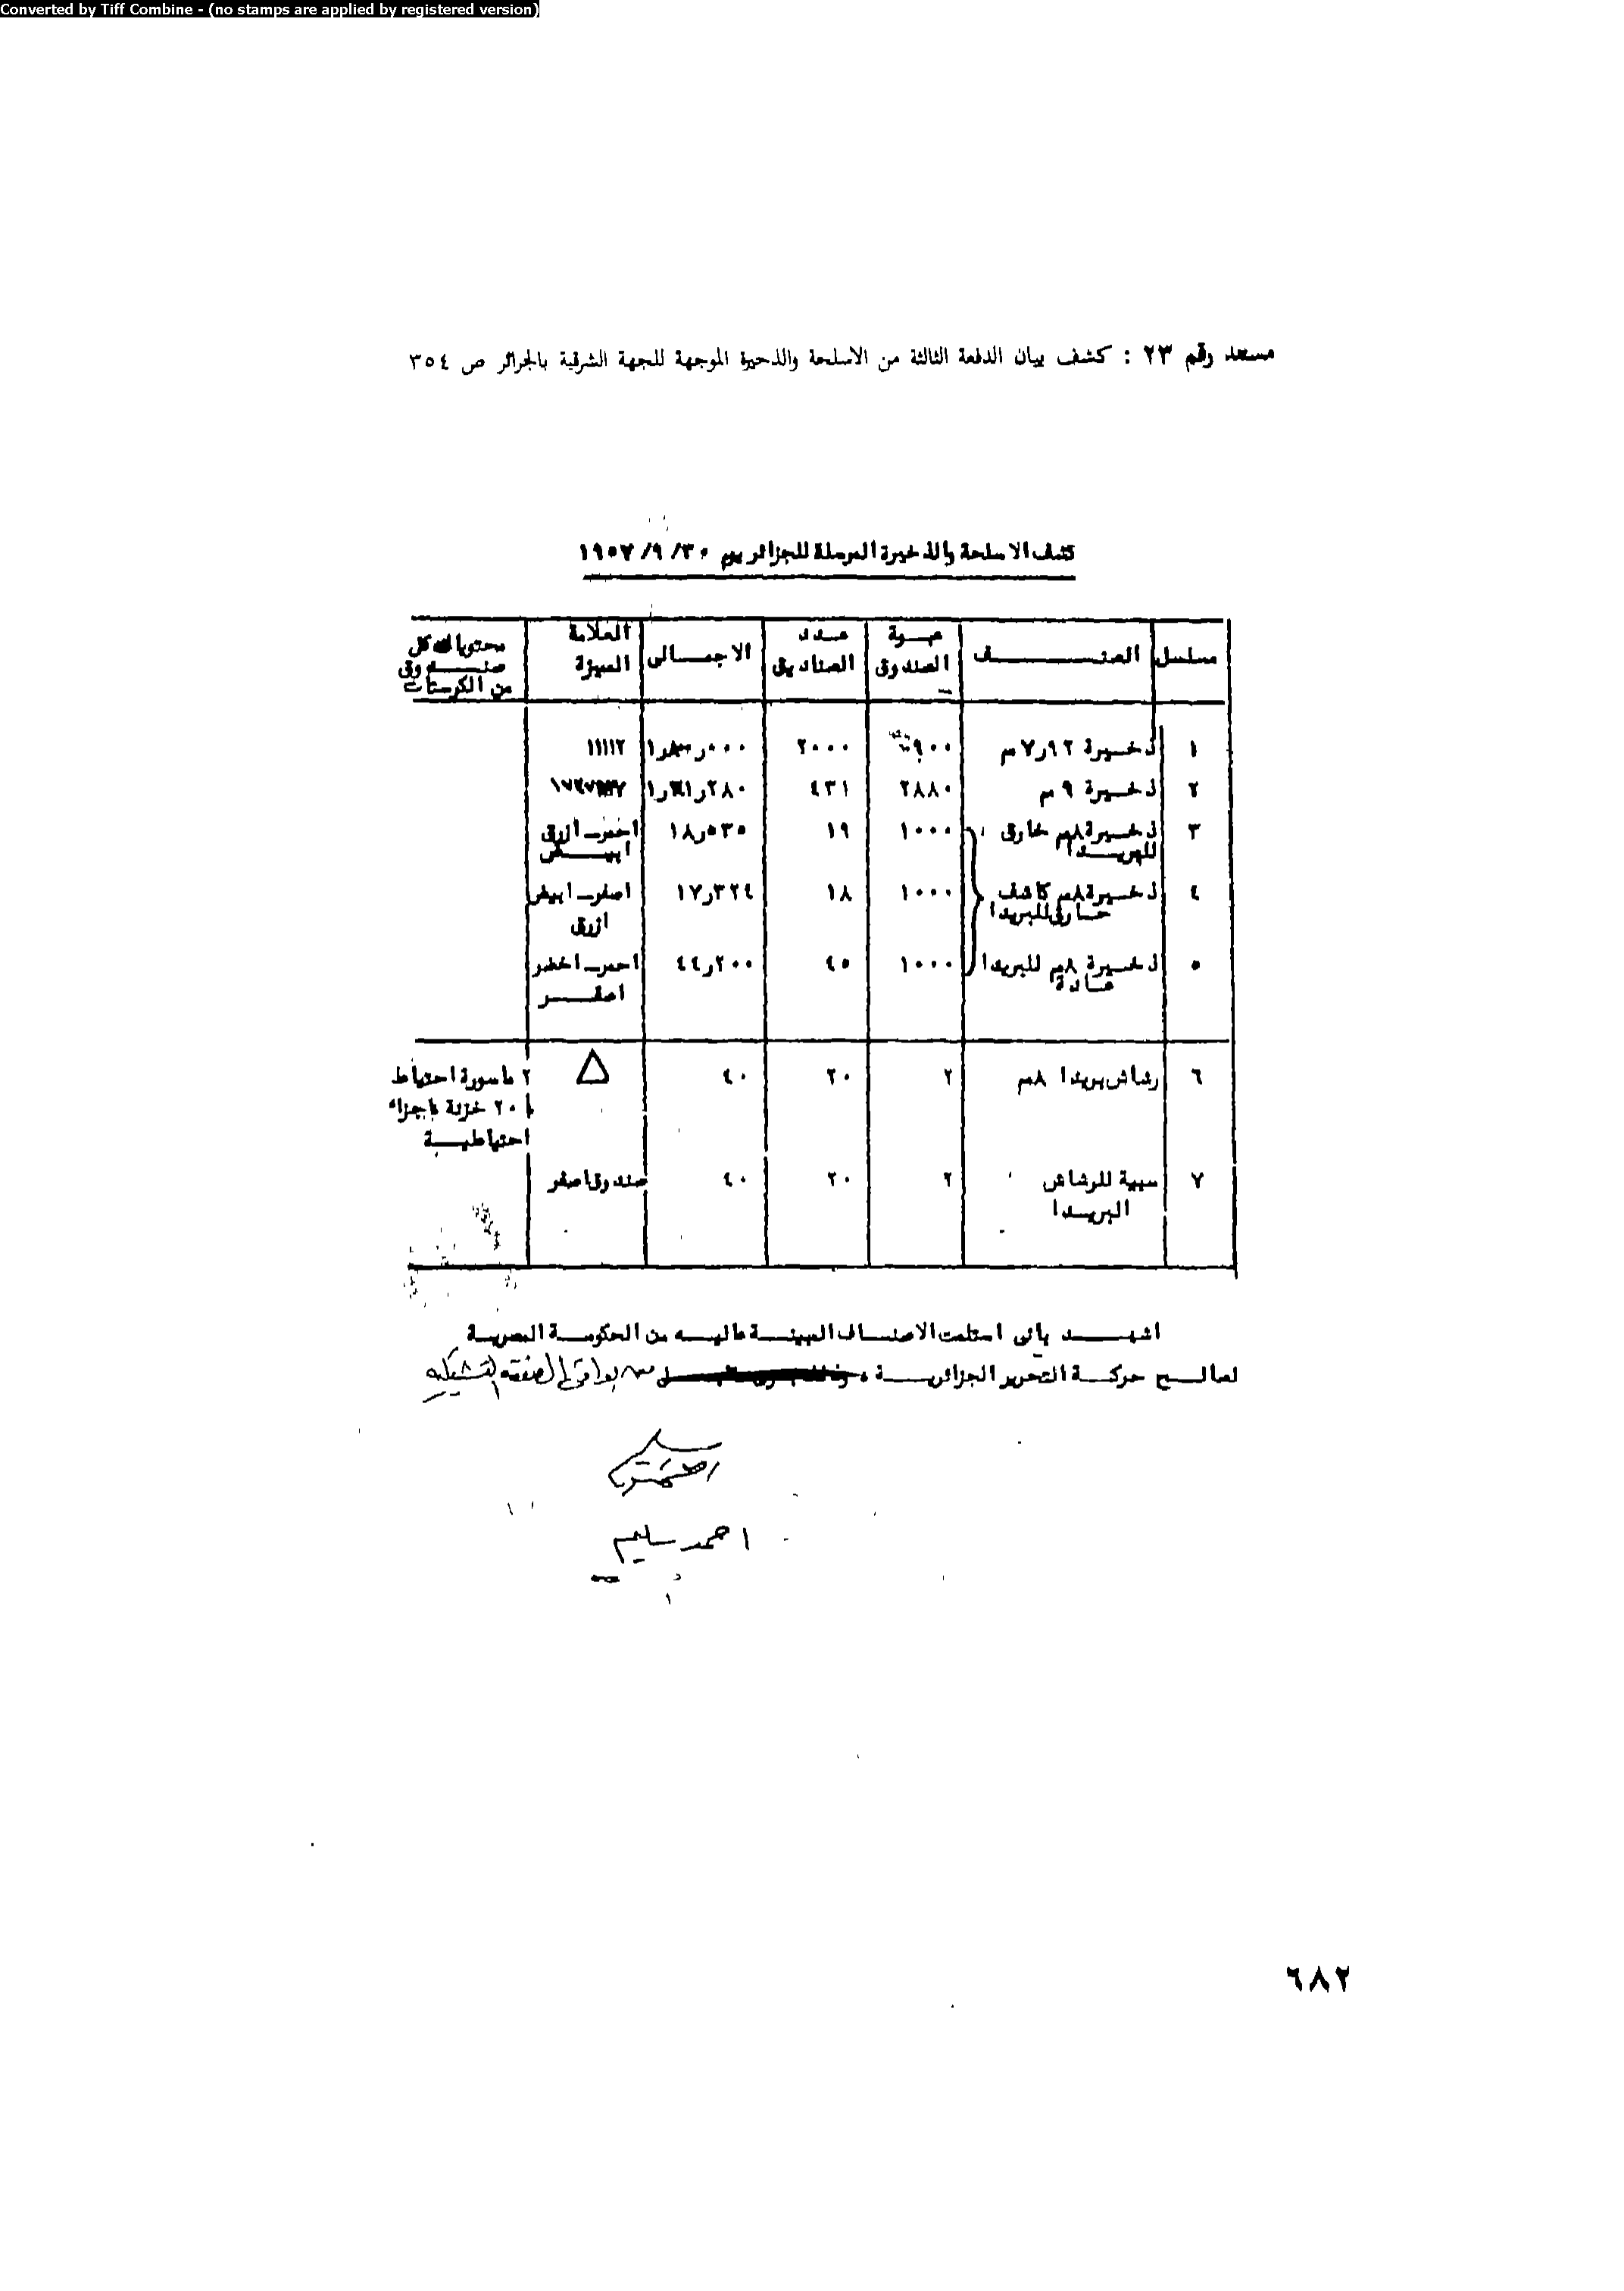 Converted by Tiff Combine - (no stamps are applied by registered version)
مستند رقم ٢٣ : كشف بيان الدفعة الثالثة من الاسلحة والذخيرة الموجهة للجهة الشرقية بالجزائر ص ٣٥٤
كشف الاسلحة والذخيرة المرسلة للجزائر يوم ٣٠/ ٩/ ١٩٥٧
مسلسل الصنف عبوة الصندوق عدد الصناديق الاجمالى العلامة المميزة محتويات كل صندوق من الكرستات
١ ذخيرة ٩٢ر٧م ٩٠٠ ٢٠٠٠ ٠٠٠ر٨٠٠ر١ ١١١١٢
٢ ذخيرة ٩م ٢٨٨٠ ٤٣١ ٢٨٠ر٢٤١ر١
٣ ذخيرة ٨م خارق للبريدا ١٠٠٠ ١٩ ٥٣٥ر١٨ احمر ـ ازرق ابيض
٤ ذخيرة ٨م كاشف حارق للبريدا ١٠٠٠ ١٨ ٣٢٤ر١٧ اصفر ـ ابيض ازرق
٥ ذخيرة ٨م للبريدا عادة ١٠٠٠ ٤٥ ٢٠٠ر٤٤ احمر ـ اخضر اصفر
٦ رشاش بريدا ٨م ٢ ٢٠ ٤٠ △ ٢ ماسورة احتياط ٢٠ خزنة اجزاء احتياطية
٧ سيبة للرشاش البريدا ٢ ٢٠ ٤٠ صندوق اصفر
اشهد بأنى استلمت الاصناف المبينة عاليه من الحكومة المصرية
لصالح حركة التحرير الجزائرية من بواقى الصفقة التشيكية
احمد سليم
٦٨٢